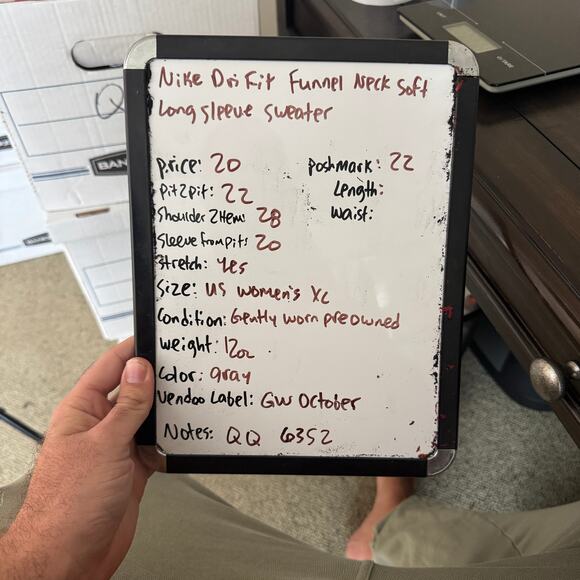 Nike Dri Fit Funnel Neck Soft
Long sleeve sweater
price: 20
poshmark: 22
Pit2pit: 22
Length:
Shoulder 2Hem: 28
waist:
Sleeve from pit: 20
Stretch: Yes
Size: US women's XL
Condition: Gently worn preowned
weight: 12oz
Color: gray
Vendoo Label: GW October
Notes: QQ 6352
Q
BAN